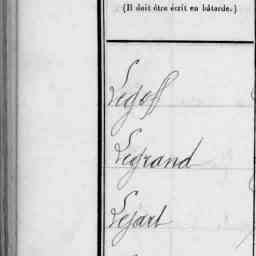 (Il doit être écrit en bâtarde.)
Legoff
Legrand
Lejart